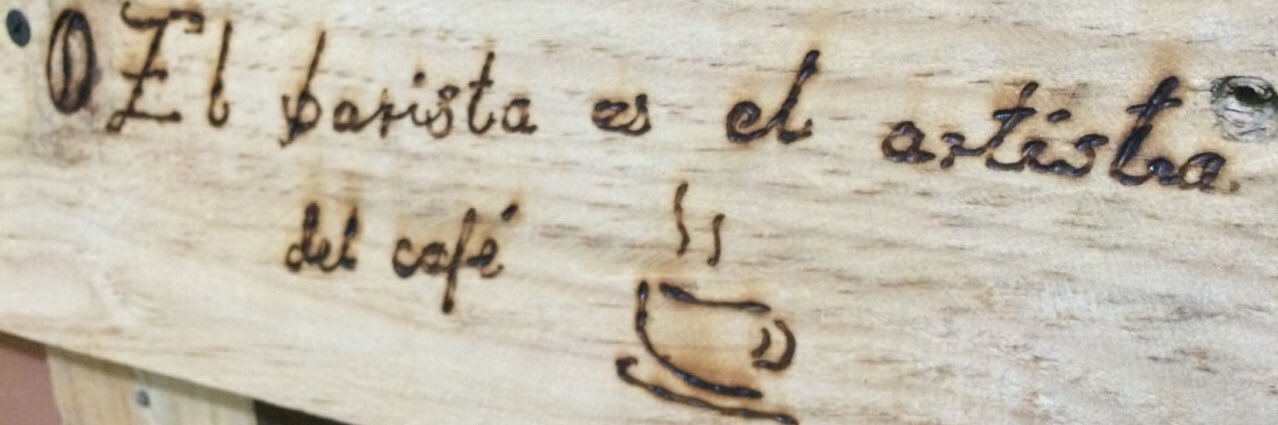 El barista es el artista
del café